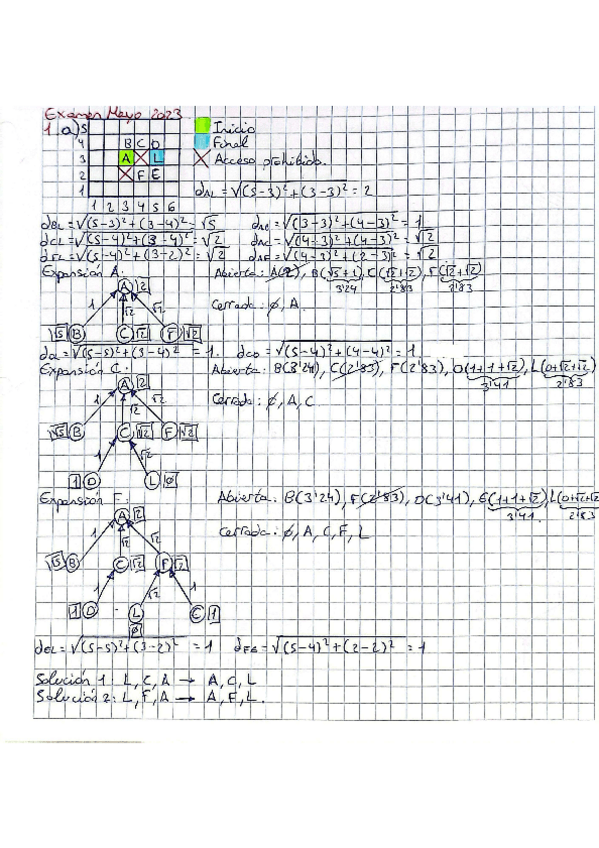 Examen Mayo 2023
1. a) 5
4 B C D
3 A L
2 F E
1
1 2 3 4 5 6
Inicio
Final
Acceso prohibido.
dAL = √(5-3)²+(3-3)² = 2
dBL = √(5-3)²+(3-4)² = √5 dAB = √(3-3)²+(4-3)² = 1
dCL = √(5-4)²+(3-4)² = √2 dAC = √(4-3)²+(4-3)² = √2
dFL = √(5-4)²+(3-2)² = √2 dAF = √(4-3)²+(2-3)² = √2
Expansión A: Abierta: A(2), B(√5+1), C(√2+√2), F(√2+√2)
3'24 2'83 2'83
A 2
1 √2 √2
Cerrada: ∅, A.
√5 B C √2 F √2
dDL = √(5-5)²+(3-4)² = 1. dCD = √(5-4)²+(4-4)² = 1
Expansión C: Abierta: B(3'24), C(2'83), F(2'83), D(1+1+√2), L(0+√2+√2)
3'41 2'83
A 2
1 √2 √2
Cerrada: ∅, A, C.
√5 B C √2 F √2
1 √2
1 D L ∅
Expansión F: Abierta: B(3'24), F(2'83), D(3'41), E(1+1+√2), L(0+√2+√2)
3'41. 2'83
A 2
1 √2 √2
Cerrada: ∅, A, C, F, L
√5 B C √2 F √2
1 √2 1
1 D L E 1
∅
dEL = √(5-5)²+(3-2)² = 1 dFE = √(5-4)²+(2-2)² = 1
Solución 1: L, C, A → A, C, L
Solución 2: L, F, A → A, F, L.